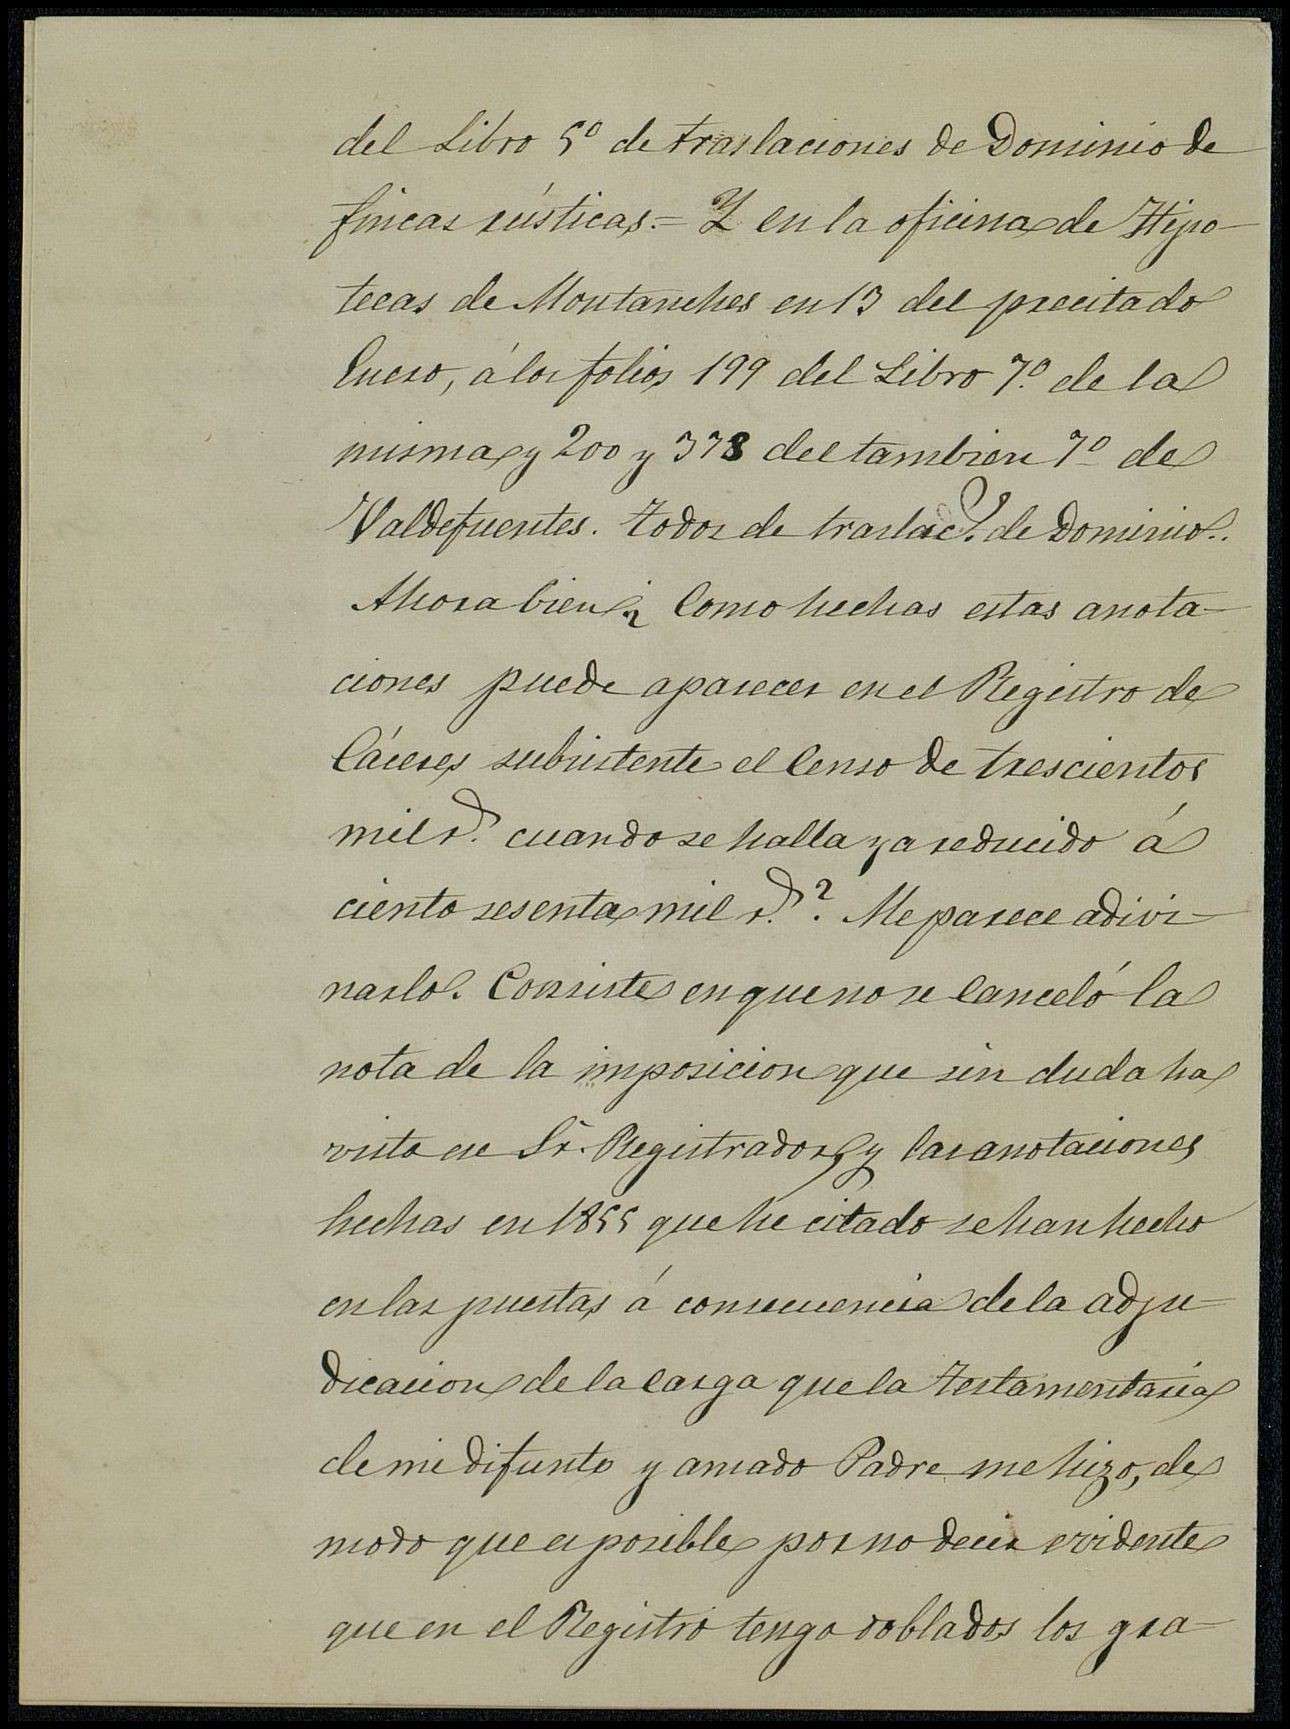 del Libro 5º de traslaciones de Dominio de
fincas rústicas.= Y en la oficina de Hipo-
tecas de Montanches en 13 del precitado
Enero, á los folios 199 del Libro 7.º de la
misma y 200 y 378 del tambien 7º de
Valdefuentes. Todos de traslac.ⁿ de Dominio..
Ahora bien; ¿Como hechas estas anota-
ciones puede aparecer en el Registro de
Cáceres subsistente el Censo de trescientos
mil r.ˢ cuando se halla ya reducido á
ciento sesenta mil r.ˢ?. Me parece adivi-
narlo. Consiste en que no se canceló la
nota de la imposicion que sin duda ha
visto ese Sr. Registrador, y las anotaciones
hechas en 1855 que he citado se han hecho
en las puestas á consecuencia de la adju-
dicacion de la carga que la Testamentaría
de mi difunto y amado Padre me hizo, de
modo que es posible por no decir evidente
que en el Registro tengo doblados los gra-